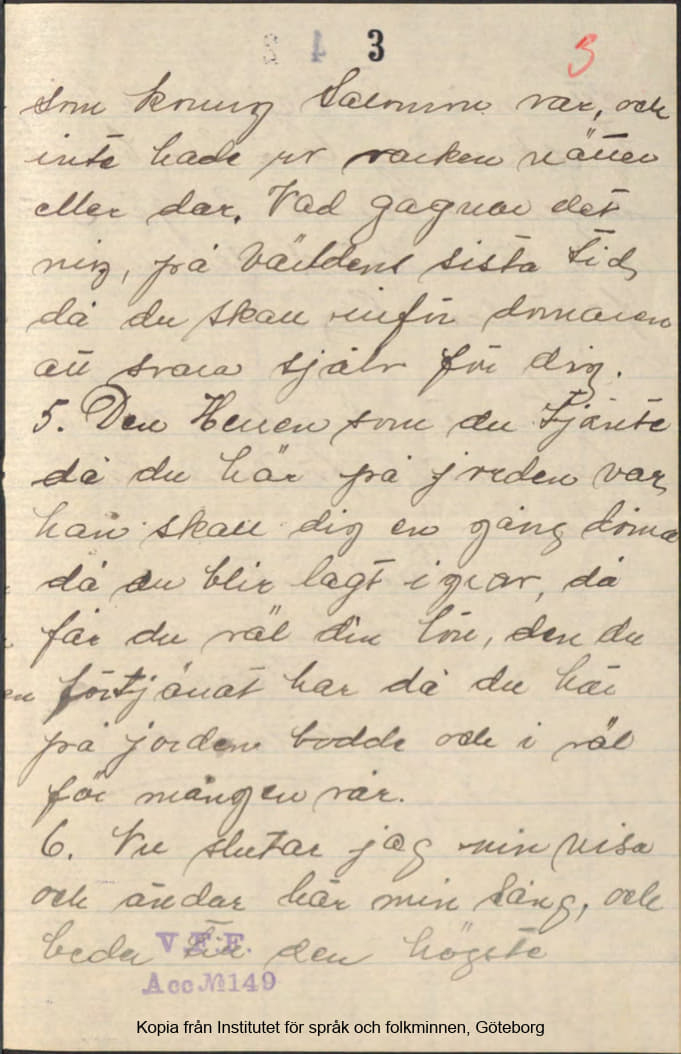 3 1 3 3
som konung Salomon var, och
inte hade ro varken nätter
eller dar. Vad gagnar det
mig, på världens sista tid,
då du skall inför domaren
att svara själv för dig.
5. Den Herren som du tjänte
då du här på jorden var,
han skall dig en gång döma
då du blir lagt i grav, då
får du väl din lön, den du
förtjänat har då du här
på jorden bodde och i väl
för mången var.
6. Nu slutar jag min visa
och ändar här min sång, och
beder till den högste
V.F.F.
Acc № 149
Kopia från Institutet för språk och folkminnen, Göteborg